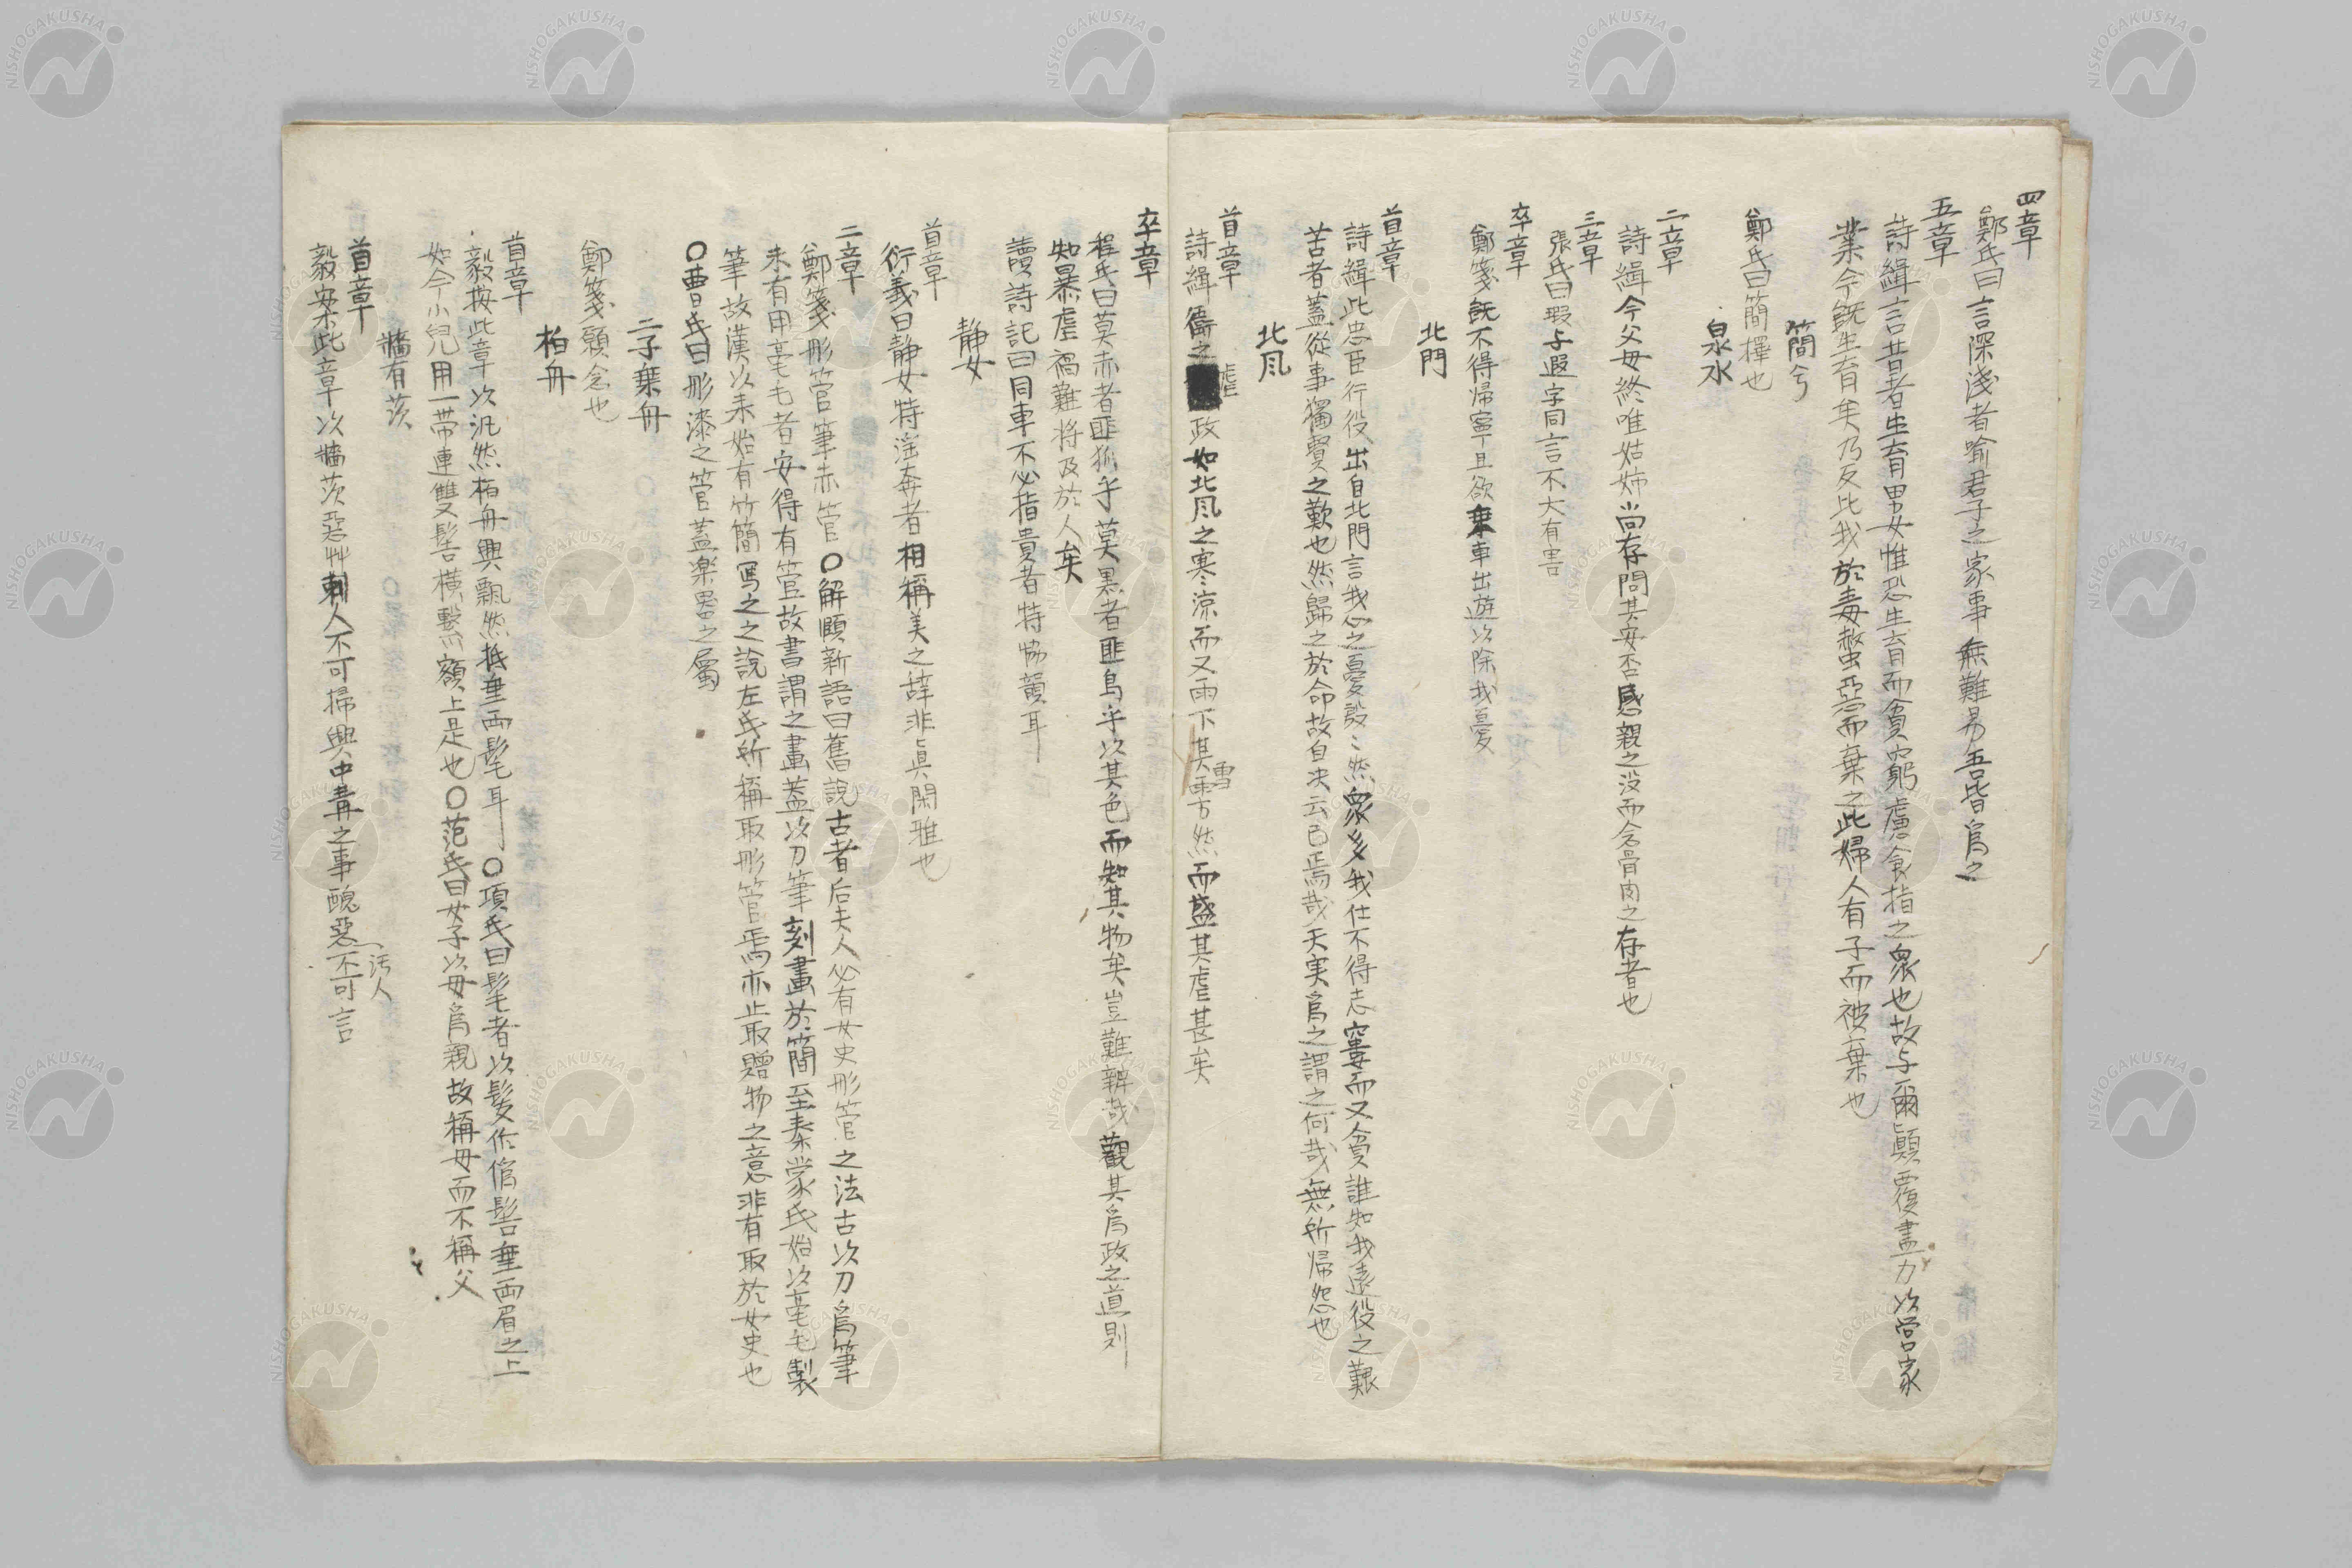 四章
鄭氏曰言深淺者喻君子之家事無難易吾皆為之
五章
詩緝言昔者生育男女惟恐生育而貧窮慮食指之衆也故与爾顛覆盡力以營家
業今既生育矣乃反比我於毒螫惡而棄之此婦人有子而被棄也
簡兮
鄭氏曰簡擇也
泉水
二章
詩緝今父母終唯姑姉尚存問其安否感親之没而念骨肉之存者也
三章
張氏曰瑕与遐字同言不大有害
卒章
鄭箋既不得帰寧且欲乗車出遊以除我憂
北門
首章
詩緝此忠臣行役出自北門言我心之憂殷〻然衆多我仕不得志窶而又貧誰知我遠役之艱
苦者蓋從事獨賢之歎也然歸之於命故自決云已焉哉天実為之謂之何哉無所帰怨也
北風
首章
詩緝衛之虐政如北風之寒涼而又雨下其雪雱然而盛其虐甚矣
卒章
程氏曰莫赤者匪狐乎莫黒者匪烏乎以其色而知其物矣豈難辨哉觀其為政之道則
知暴虐禍難将及於人矣
讀詩記曰同車不必指貴者特協韻耳
静女
首章
衍義曰静女特淫奔者相稱美之辞非眞閑雅也
二章
鄭箋彤管筆赤管○解頤新語曰舊説古者后夫人必有女史彤管之法古以刀為筆
未有用毫毛者安得有管故書謂之畫蓋以刀筆刻畫於簡至秦蒙氏始以毫毛製
筆故漢以来始有竹簡写之之説左氏所稱取彤管焉亦止取贈物之意非有取於女史也
○曹氏曰彤漆之管蓋楽器之屬
二子乗舟
鄭箋願念也
柏舟
首章
毅按此章以汎然柏舟興飄然抵垂両髦耳○項氏曰髦者以髮作偽髻垂両眉之上
如今小兒用一帯連雙髻横繋額上是也○范氏曰女子以母為親故稱母而不稱父
牆有茨
首章
毅案此章以牆茨惡艸刺人不可掃興中冓之事醜惡汚人不可言